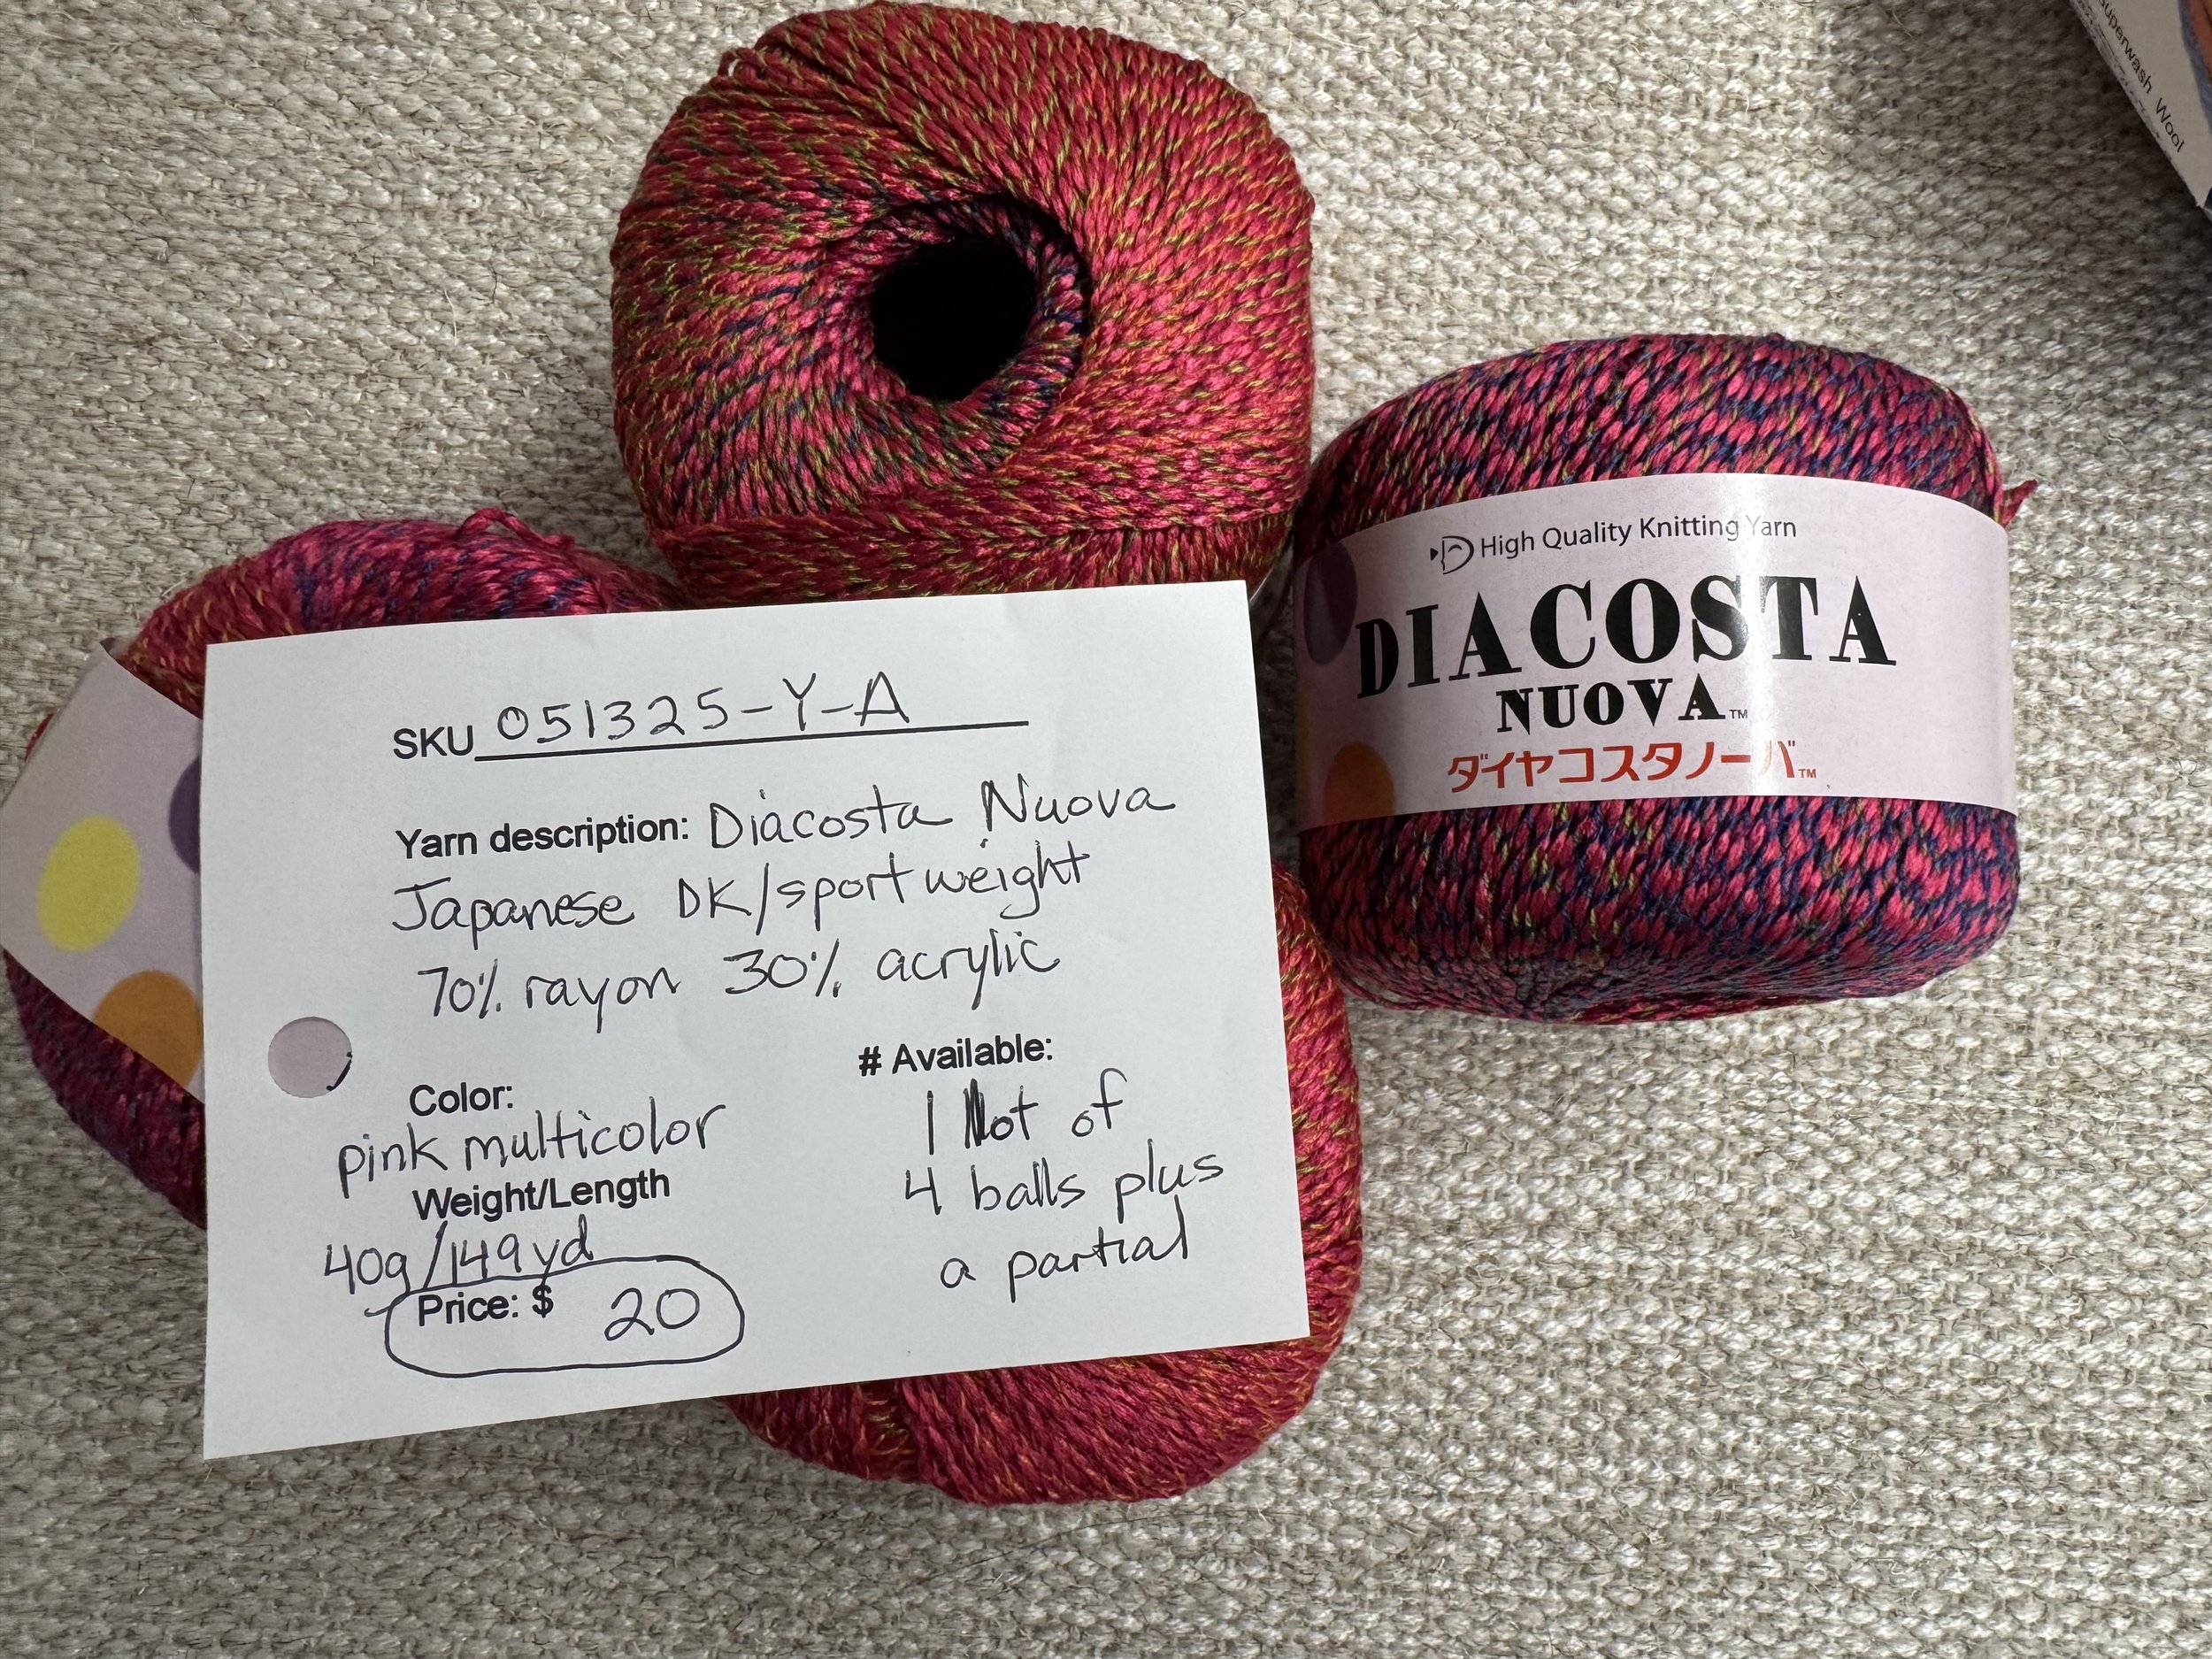 Superwash Wool
High Quality Knitting Yarn
DIACOSTA
NUOVA™
ダイヤコスタノーバ™
SKU 051325-Y-A
Yarn description: Diacosta Nuova
Japanese DK/sport weight
70% rayon 30% acrylic
Color:
pink multicolor
Weight/Length
40g/149yd
Price: $ 20
# Available:
1 lot of
4 balls plus
a partial